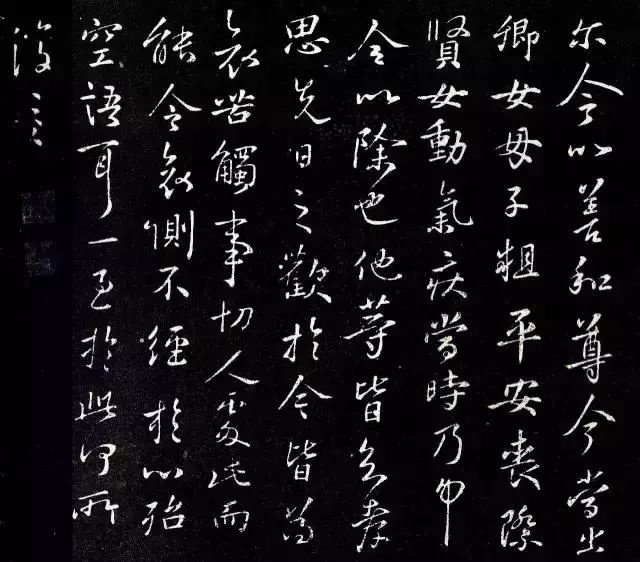 尔今以善和尊今當
卿女母子粗平安喪際
賢女動氣疾當時乃
今以除也他等皆
思先日之歡於今皆為
哀苦觸事切人處此而
能令哀惻不經於心殆
空語耳一至於此何所
復言